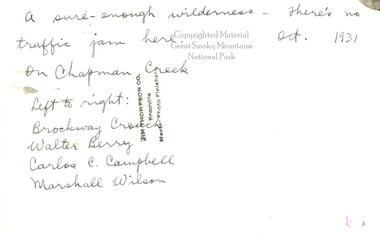 A sure-enough wilderness - There's no
traffic jam here. Oct. 1931
Copyrighted Material
Great Smoky Mountains
National Park
On Chapman Creek
Left to right:
Brockway Crouch
Walter Berry
Carlos C. Campbell
Marshall Wilson
JIM THOMPSON CO.
Knoxville
Master Photo Finishers